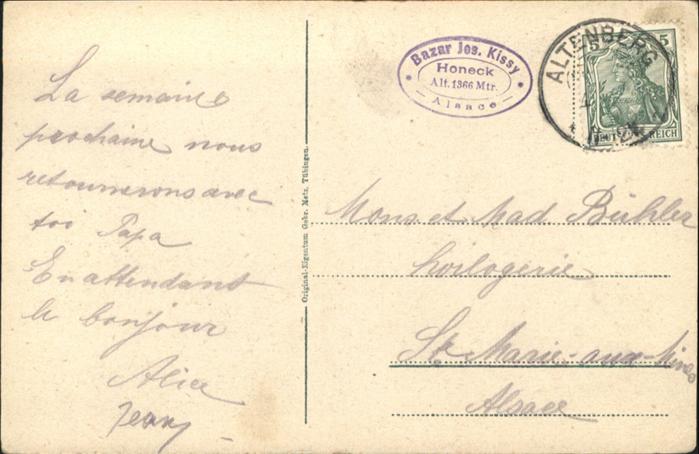 La semaine
prochaine nous
retournerons avec
toi Papa
En attendant
le bonjour
Alice
Jeany
Original-Eigentum Gebr. Metz, Tübingen.
Bazar Jos. Kissy
Honeck
Alt. 1366 Mtr.
Alsace
ALTENBERG
5 5
DEUTSCHES REICH
Mons et Mad Bühler
horlogerie
Ste Marie-aux-Mines
Alsace